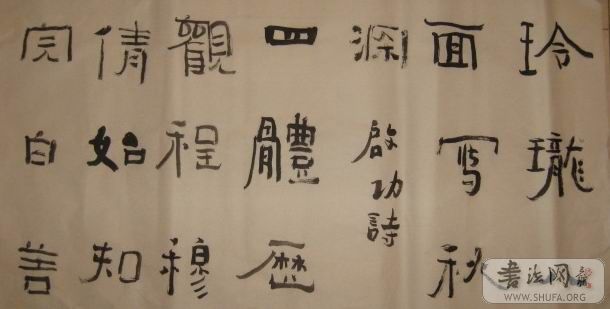 玲瓏
面寫秋
啟功詩
四體歷
觀程穆
倩始知
完白善
書法网
WWW.SHUFA.ORG